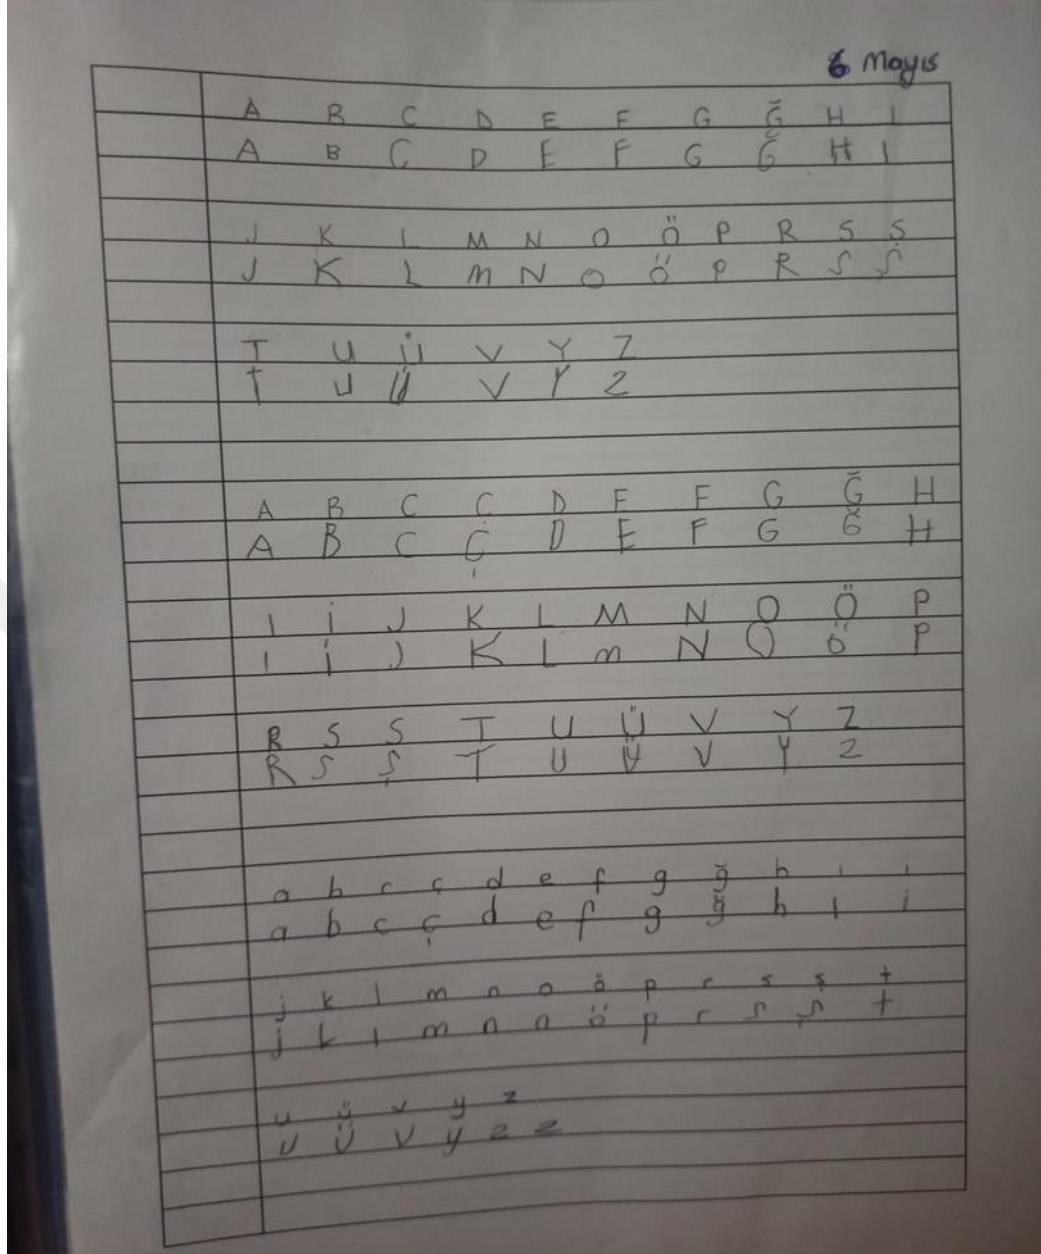 6 Mayıs
A B C D E F G Ğ H I
A B C D E F G Ğ H I
J K L M N O Ö P R S Ş
J K L M N O Ö P R S Ş
T U Ü V Y Z
T U Ü V Y Z
A B C Ç D E F G Ğ H
A B C Ç D E F G Ğ H
I İ J K L M N O Ö P
I İ J K L m N O Ö P
R S S T U Ü V Y Z
R S Ş T U Ü V Y Z
a b c ç d e f g ğ h ı i
a b c ç d e f g ğ h ı i
j k l m n o ö p r s ş t
j k l m n o ö p r s ş t
u ü v y z
u ü v y z z